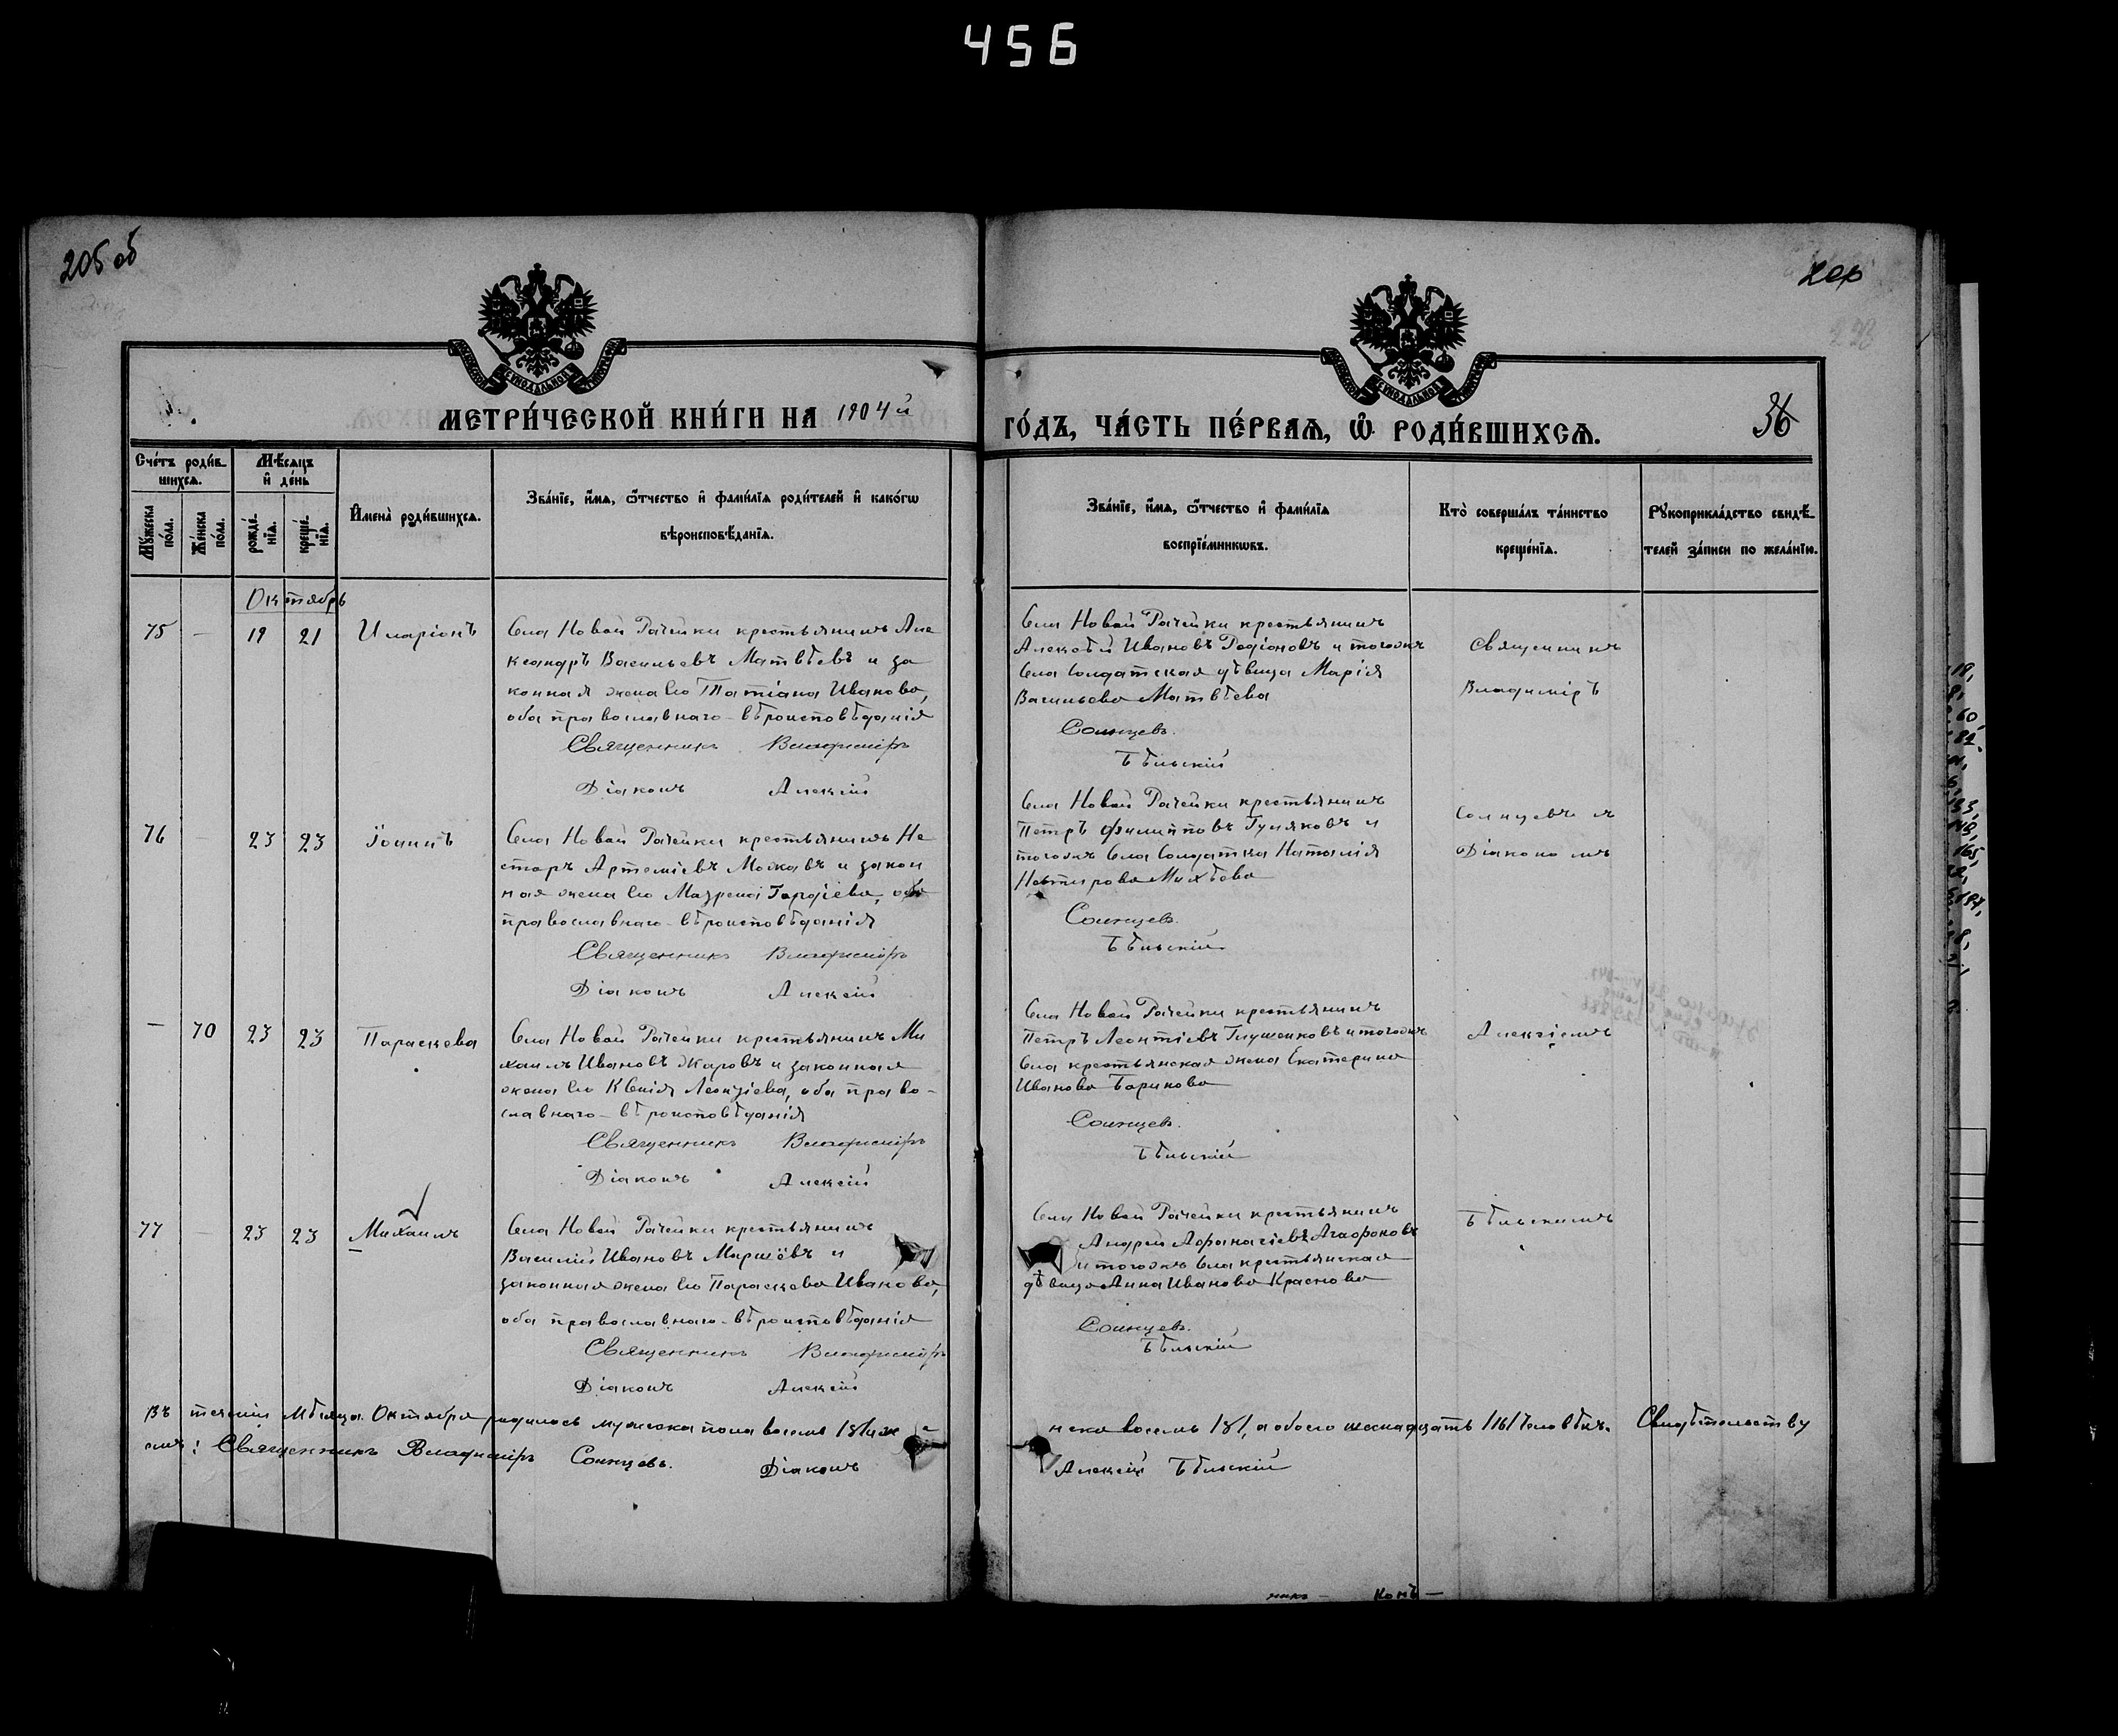 456
205 об
206
МЕТРИ́ЧЕСКОЙ КНИ́ГИ НА 1904й
ГО́ДЪ, ЧА́СТЬ ПЕ́РВАѦ, Ѽ РОДИ́ВШИХСѦ.
36
Сче́тъ роди́в-
шихсѧ.
Мѣ́сѧцъ
и҆ де́нь
Мꙋ́жеска по́ла.
Же́нска по́ла.
рожде́-
нїѧ.
креще́-
нїѧ.
И҆мена̀ роди́вшихсѧ.
Зва́нїе, и҆́мѧ, ѻ҆́тчество и҆ фами́лїѧ роди́телей и҆ како́гѡ
вѣроисповѣ́данїѧ.
Зва́нїе, и҆́мѧ, ѻ҆́тчество и҆ фами́лїѧ
воспрїе́мникѡвъ.
Кто̀ соверша́лъ та́инство
креще́нїѧ.
Рꙋкоприкла́дство свидѣ́-
телей за́писи по жела́нїю.
Октябрь
75 — 19 21 Иларіонъ
Села Новой Рачейки крестьянинъ Але
ксандръ Васильевъ Матвѣевъ и за
конная жена его Татіана Иванова,
оба православнаго вѣроисповѣданія
Священникъ Владиміръ
Діаконъ Алексій
Села Новой Рачейки крестьянинъ
Алексѣй Ивановъ Родіоновъ и тогожъ
села солдатская дѣвица Марія
Васильева Матвѣева
Солнцевъ.
Бѣльскій
Священникъ
Владиміръ
76 — 23 23 Іоаннъ
Села Новой Рачейки крестьянинъ Не
сторъ Артеміевъ и закон
ная жена его Мавра Гордіева, оба
православнаго вѣроисповѣданія
Священникъ Владиміръ
Діаконъ Алексій
Села Новой Рачейки крестьянинъ
Петръ Филипповъ Гуляковъ и
тогожъ села солдатка Наталія
Солнцевъ.
Бѣльскій
Солнцевъ съ
Діакономъ
— 70 23 23 Параскева
Села Новой Рачейки крестьянинъ Ми
хаилъ Ивановъ Жаровъ и законная
жена его Ксенія Леонтіева, оба право-
славнаго вѣроисповѣданія
Священникъ Владиміръ
Діаконъ Алексій
Села Новой Рачейки крестьянинъ
Петръ Леонтіевъ Глушенковъ и тогожъ
села крестьянская жена Екатерина
Иванова Баринова
Солнцевъ.
Бѣльскій
Алексіемъ
77 — 23 23 Михаилъ
Села Новой Рачейки крестьянинъ
Василій Ивановъ и
законная жена его Параскева Иванова,
оба православнаго вѣроисповѣданія
Священникъ Владиміръ
Діаконъ Алексій
Села Новой Рачейки крестьянинъ
Андрей Афанасіевъ Агафоновъ
и тогожъ села крестьянская
дѣвица Анна Иванова Краснова
Солнцевъ.
Бѣльскій
Бѣльскимъ
Въ теченіи мѣсяца Октября родилось мужеска пола восемь /8/ и же
нска восемь /8/, а обоего шеснадцать /16/ человѣкъ. Свидѣтельству
емъ: Священникъ Владиміръ Солнцевъ. Діаконъ
Алексій Бѣльскій